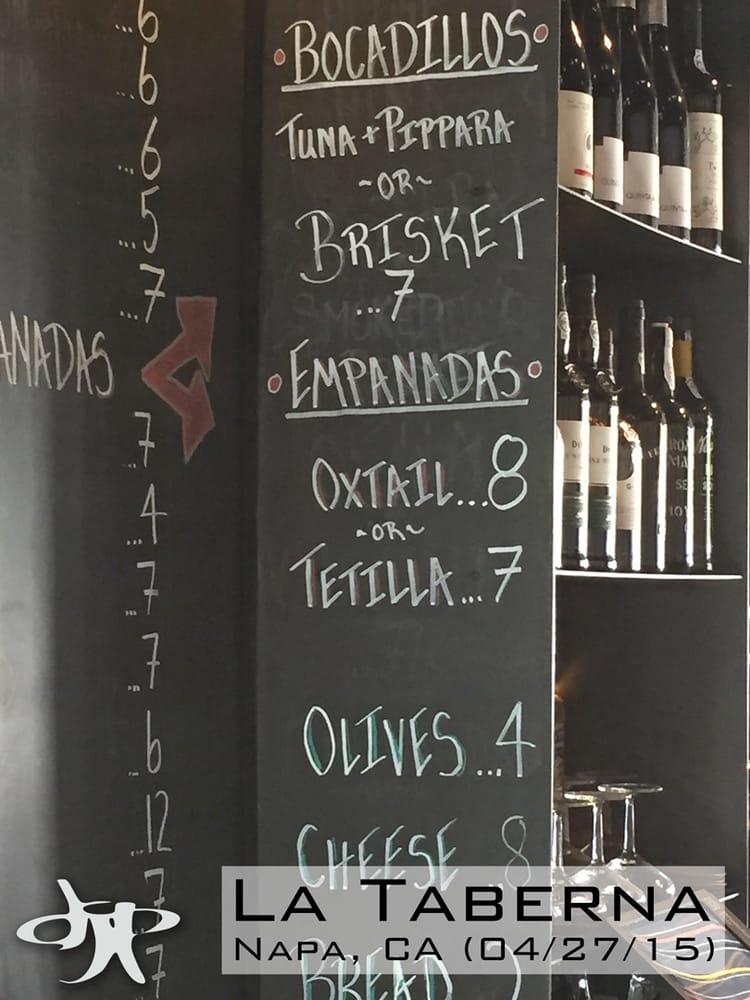 ...6
...6
...6
...5
...7
ANADAS
...7
...4
...7
...7
...6
...12
7
7
BOCADILLOS
TUNA + PIPPARA
~OR~
BRISKET
...7
EMPANADAS
OXTAIL...8
~OR~
TETILLA...7
OLIVES...4
CHEESE 8
BREAD
QUINTA
QUINTA
LA TABERNA
NAPA, CA (04/27/15)